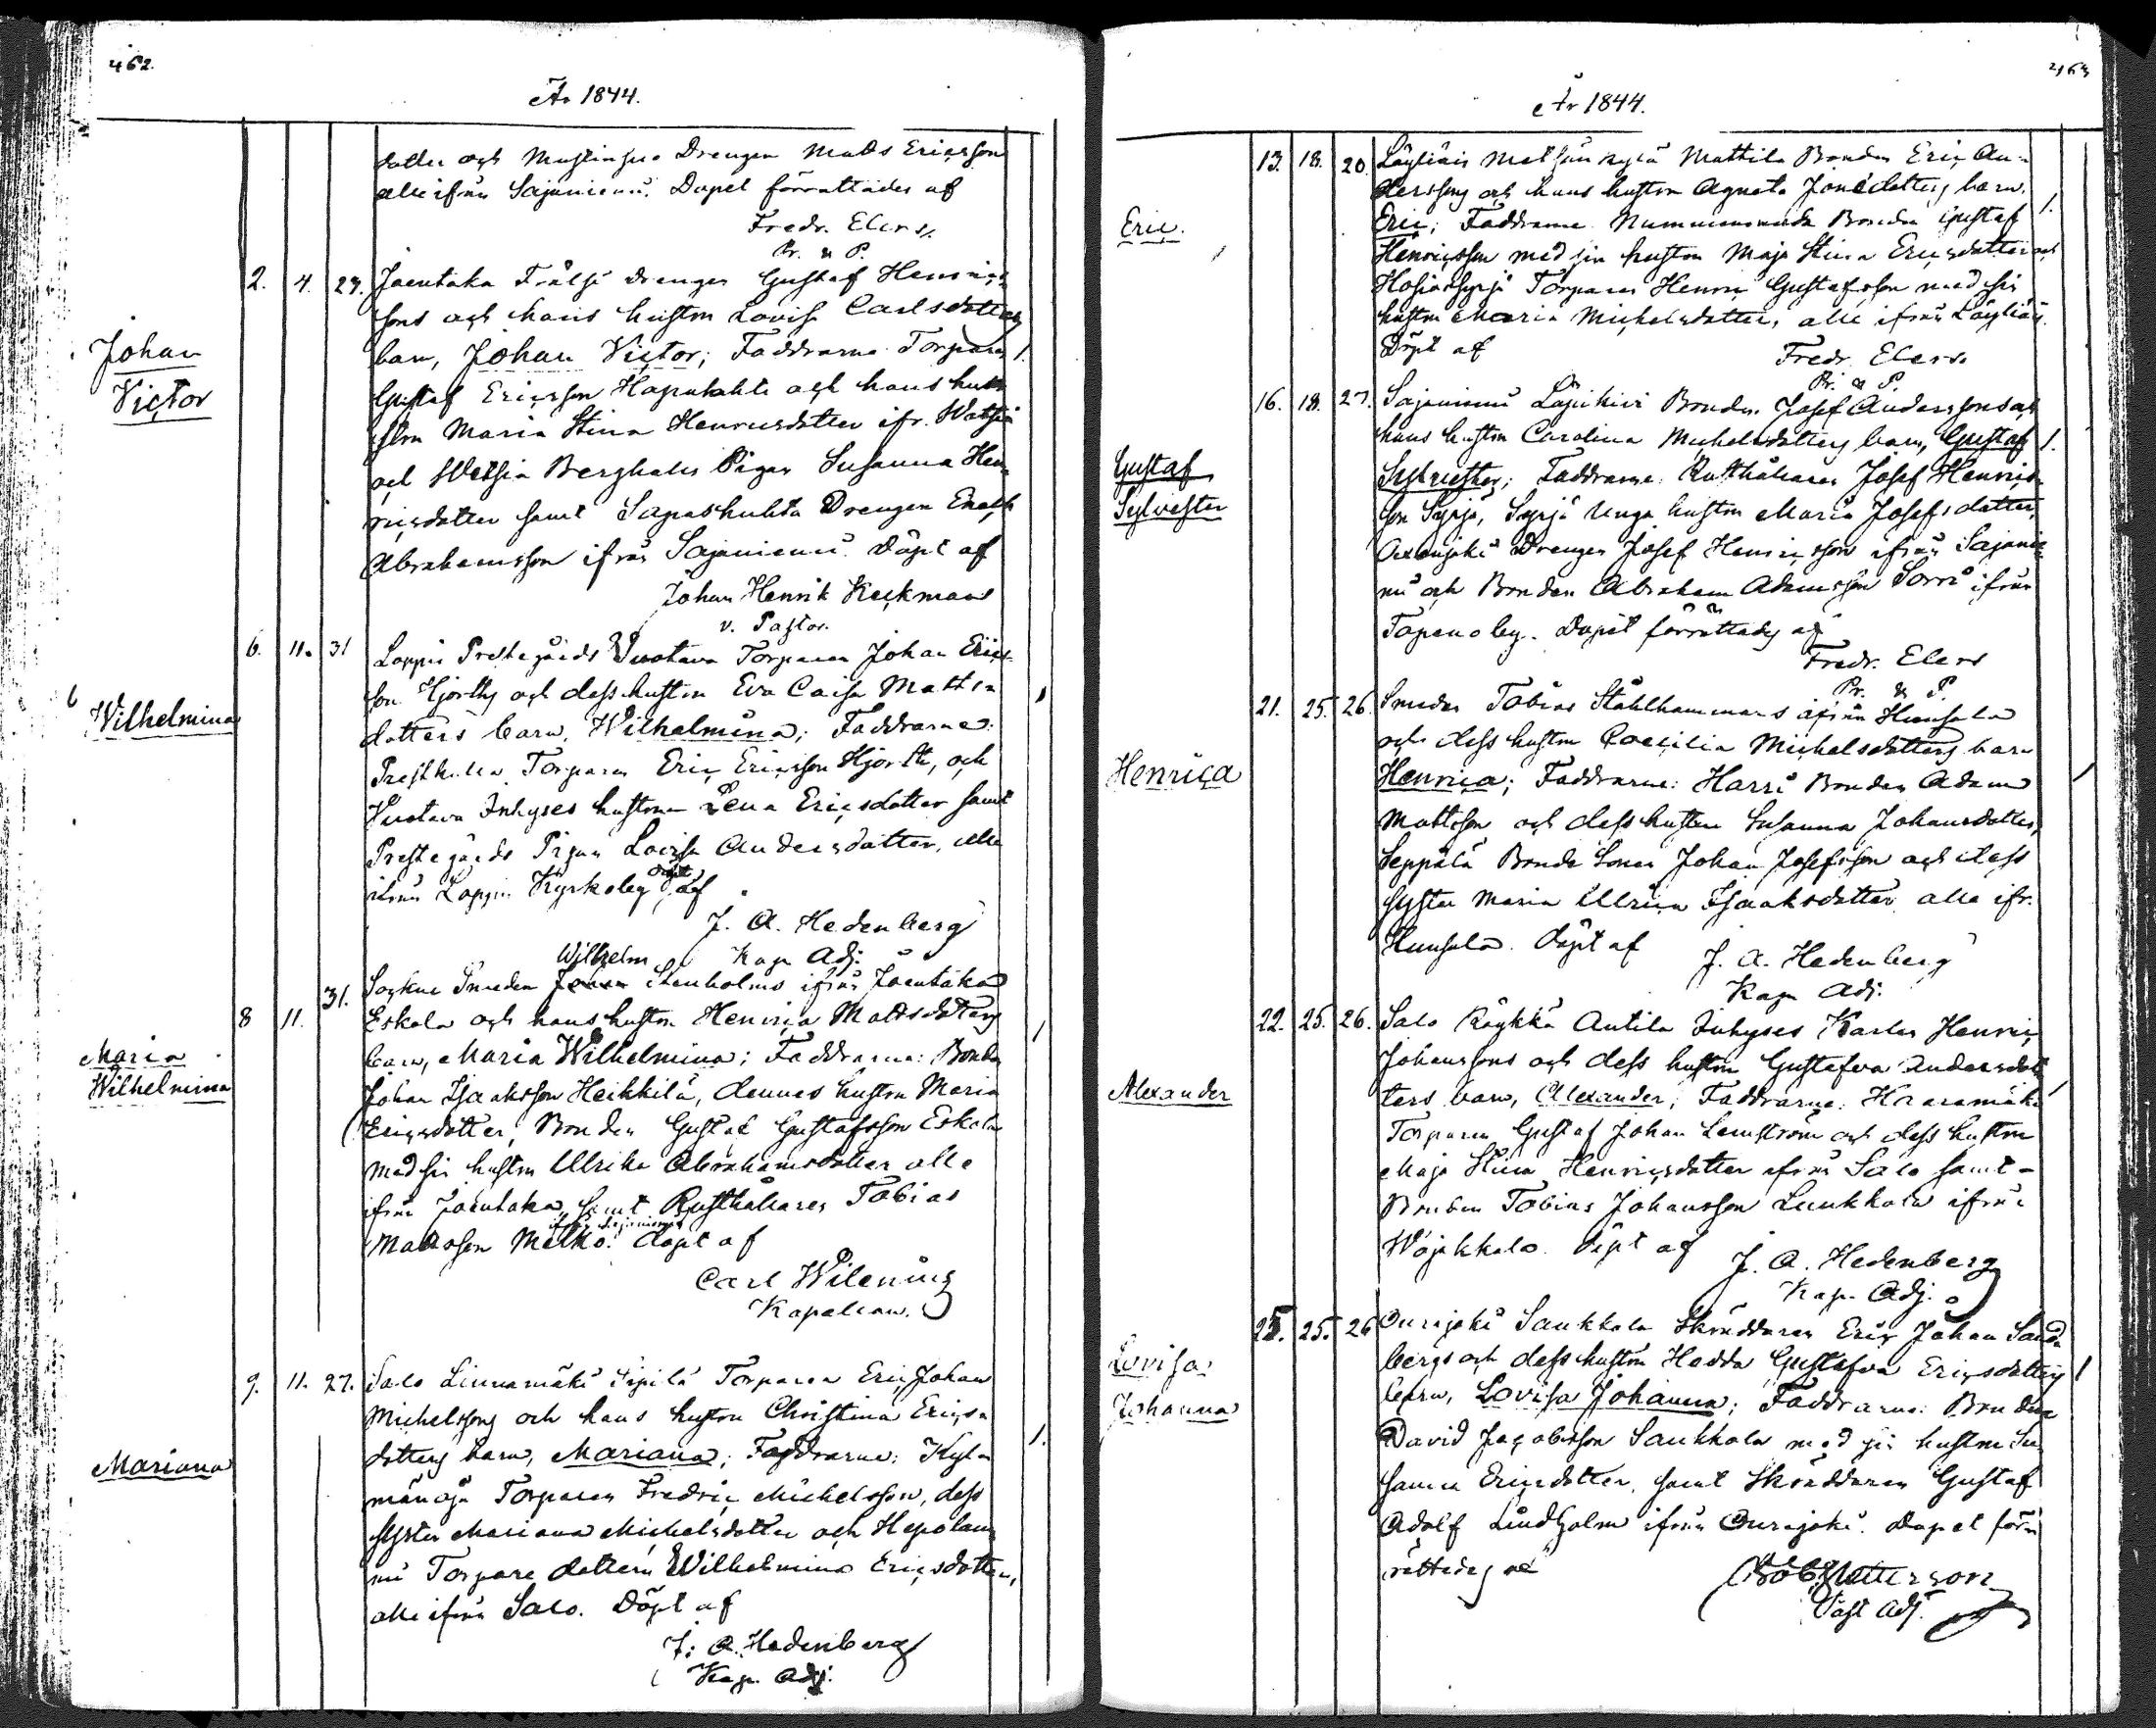 462.
År 1844.
dotter och Drengen Matts Ericsson
alle ifrån Sajaniemi. Dopet förrättades af
Fredr. Elers.
Pr. & P.
2. 4. 23. Joentaka Frälse drengen Gustaf Henrics
sons och hans hustru Lovisa Carlsdotters
Johan
Victor
barn, Johan Victor; Faddrarne Torparen 1.
Gustaf Ericsson Haputahti och hans hu
stru Maria Stina Henricsdotter ifr.
och Berghalls Pigan Susanna Hen
ricsdotter samt Sapashuhta Drengen
Abrahamsson ifrån Sajaniemi. Döpt af
Johan Henrik Keckman
v. Pastor.
6. 11. 31 Loppis Prestegårds Torparen Johan Erics
son Hjorths och dess hustru Eva Caisa Matts
Wilhelmina
dotters barn, Wilhelmina; Faddrarne:
Torparen Eric Ericsson Hjorth, och
Inhyses hustrun Lena Ericsdotter samt
Prestegårds Pigan Lovisa Andersdotter, alle
ifrån Loppis Kyrkoby döpt af
J. A. Hedenberg
Kap. Adj.
Wilhelm
8 11. 31. Sockne Smeden Johan Stenholms ifrån Joentaka
Eskola och hans hustru Henrica Mattsdotters
Maria
Wilhelmina
barn, Maria Wilhelmina; Faddrarne: Bonden
Johan Isaaksson Heikkilä, dennes hustru Maria
Ericsdotter, Bonden Gustaf Gustafsson Eskola
med sin hustru Ulrika Abrahamsdotter alle
ifrån Joentaka, samt Rusthållaren Tobias
ifrån Sajaniemi
Mattsson Melko. döpt af
Carl Wilenius
Kapellan.
9. 11. 27. Salo Linnamäki Sipilä Torparen Eric Johan
Michelssons och hans hustru Christina Erics
Mariana
dotters barn, Mariana; Faddrarne: Kylä 1.
mänoja Torparen Fredric Michelsson, dess
syster Mariana Michelsdotter och
Torpare dottern Wilhelmina Ericsdotter,
alle ifrån Salo. Döpt af
J. A. Hedenberg
Kap. Adj.
463
År 1844.
13. 18. 20. Läyliäis Mattila Bonden Eric An
derssons och hans hustru Agneta Jonædotters barn,
Eric.
Eric; Faddrarne Bonden Gustaf 1.
Henricsson med sin hustru Maja Stina Ericsdotter och
Torparen Henric Gustafsson med sin
hustru Maria Michelsdotter, alle ifrån Läyliäis.
Döpt af
Fredr. Elers.
Pr. & P.
16. 18. 27. Sajaniemi Bonden Josef Anderssons och
hans hustru Carolina Michelsdotters barn, Gustaf 1.
Gustaf
Sylvester
Sylvester; Faddrarne: Rusthållaren Josef Henrics
son Syrjä, Syrjä Unga hustru Maria Josefsdotter,
Drengen Josef Henricsson ifrån Sajanie
mi och Bonden Abraham Adamsson Sorri ifrån
Topeno by. Dopet förrättades af
Fredr. Elers
Pr. & P.
21. 25. 26. Smeden Tobias Stålhammars ifrån Hunsala
och dess hustru Coecilia Michelsdotters barn
Henrica
Henrica; Faddrarne: Harri Bonden Adam
Mattsson och dess hustru Susanna Johansdotter,
Seppälä Bonde Sonen Johan Josefsson och dess
syster Maria Ulrica Isaaksdotter alle ifr.
Hunsala. döpt af
J. A. Hedenberg
Kap. Adj.
22. 25. 26. Salo Räykkä Antila Inhyses Karlen Henric
Johanssons och dess hustru Gustafva Andersdot
Alexander
ters barn, Alexander, Faddrarne: Haaramäki
Torparen Gustaf Johan Lemström och dess hustru
Maja Stina Henricsdotter ifrån Salo samt
Bonden Tobias Johansson Luukkala ifrån
Wojakkala. Döpt af
J. A. Hedenberg
Kap. Adj.
25. 25. 26 Ourajoki Saukkola Skräddaren Eric Johan Sand
bergs och dess hustru Hedda Gustafva Ericsdotters 1
Lovisa
Johanna
barn, Lovisa Johanna; Faddrarne: Bonden
David Jacobsson Saukkola med sin hustru Su
sanna Ericsdotter, samt Skräddaren Gustaf
Adolf Lindholm ifrån Ourajoki. Dopet för
rättades af
Past Adj.